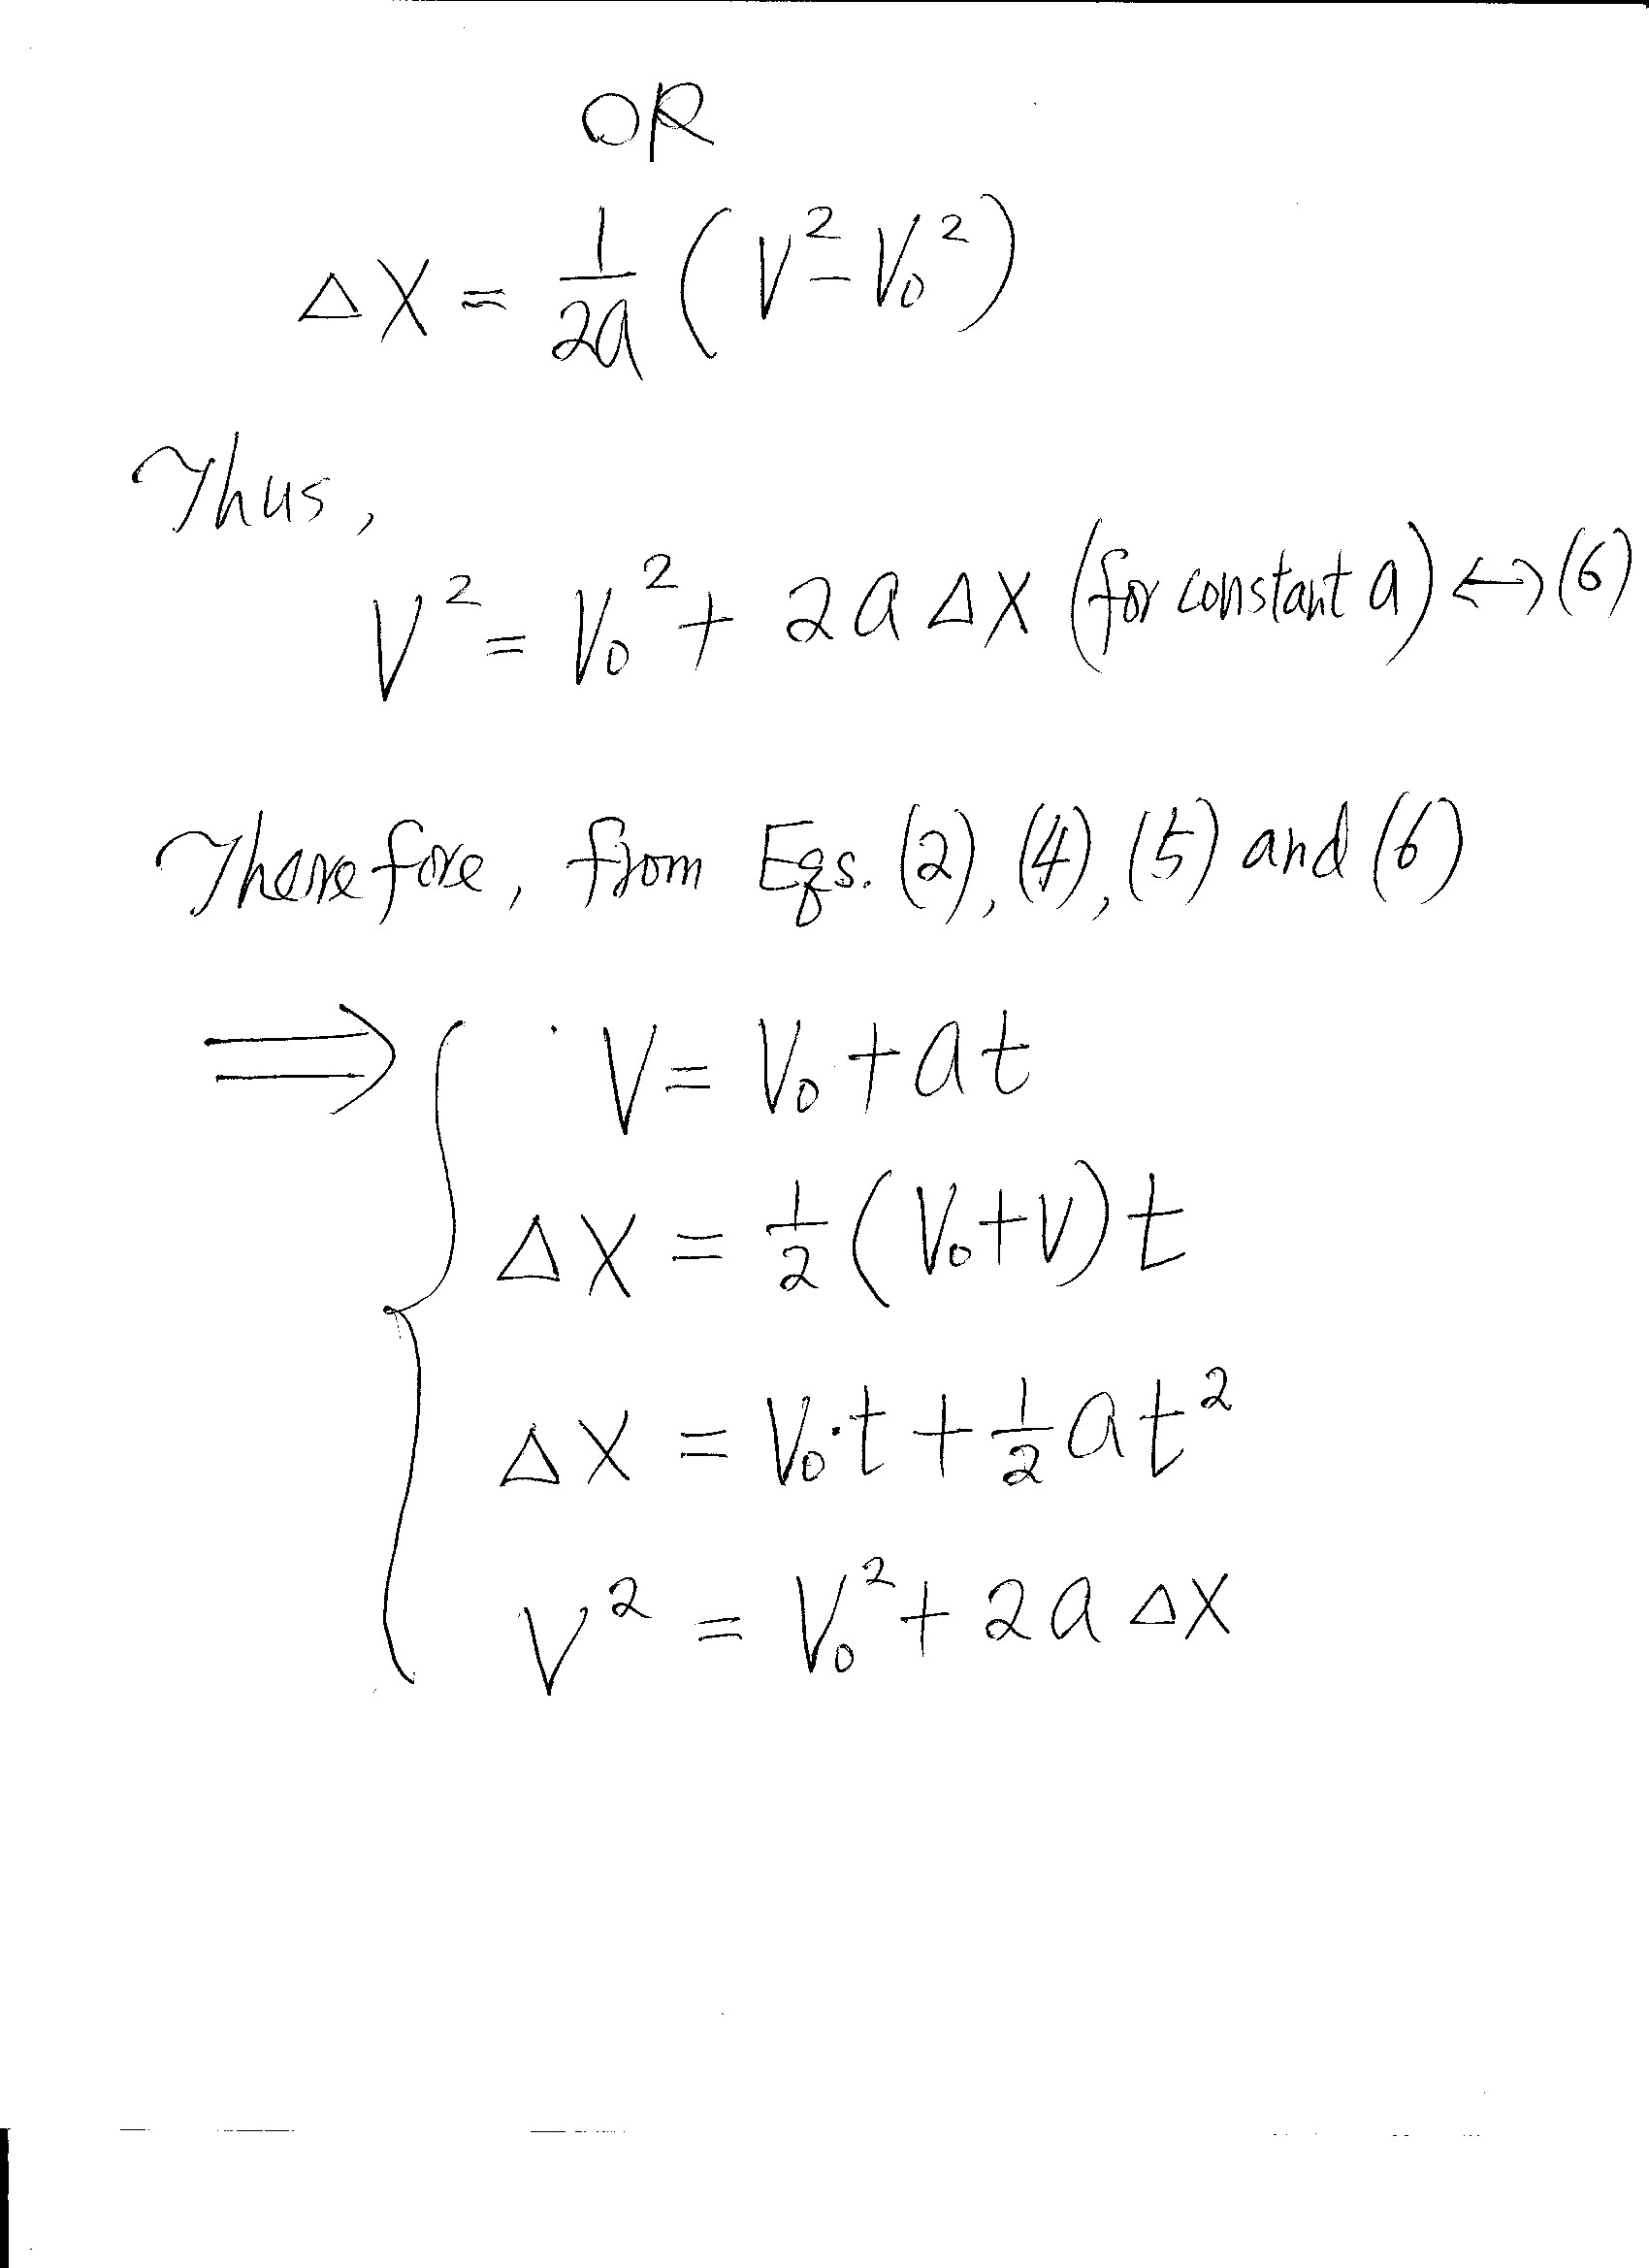 OR
ΔX = 1/2a (V² - V₀²)
Thus,
V² = V₀² + 2a ΔX (for constant a) ↔ (6)
Therefore, from Eqs. (2), (4), (5) and (6)
⇒ { V = V₀ + at
ΔX = 1/2 (V₀ + V) t
ΔX = V₀·t + 1/2 at²
V² = V₀² + 2a ΔX